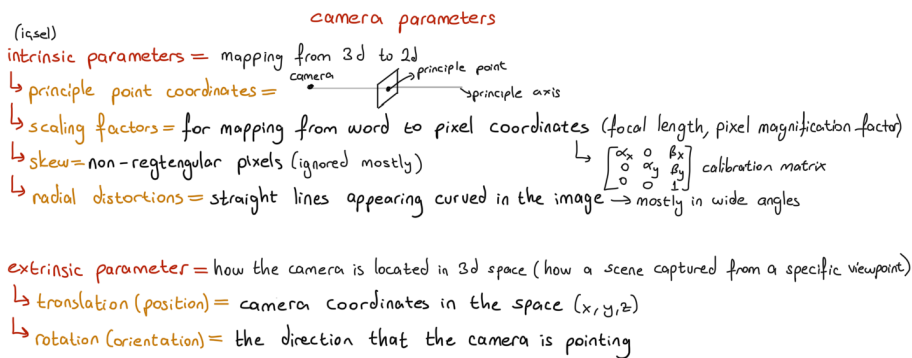 camera parameters
(içsel)
intrinsic parameters = mapping from 3d to 2d
camera
principle point
↳ principle point coordinates =
principle axis
↳ scaling factors = for mapping from word to pixel coordinates (focal length, pixel magnification factor)
↳ skew = non-regtengular pixels (ignored mostly)
↳ [αx 0 βx
0 αy βy
0 0 1] calibration matrix
↳ radial distortions = straight lines appearing curved in the image → mostly in wide angles
extrinsic parameter = how the camera is located in 3d space (how a scene captured from a specific viewpoint)
↳ translation (position) = camera coordinates in the space (x, y, z)
↳ rotation (orientation) = the direction that the camera is pointing